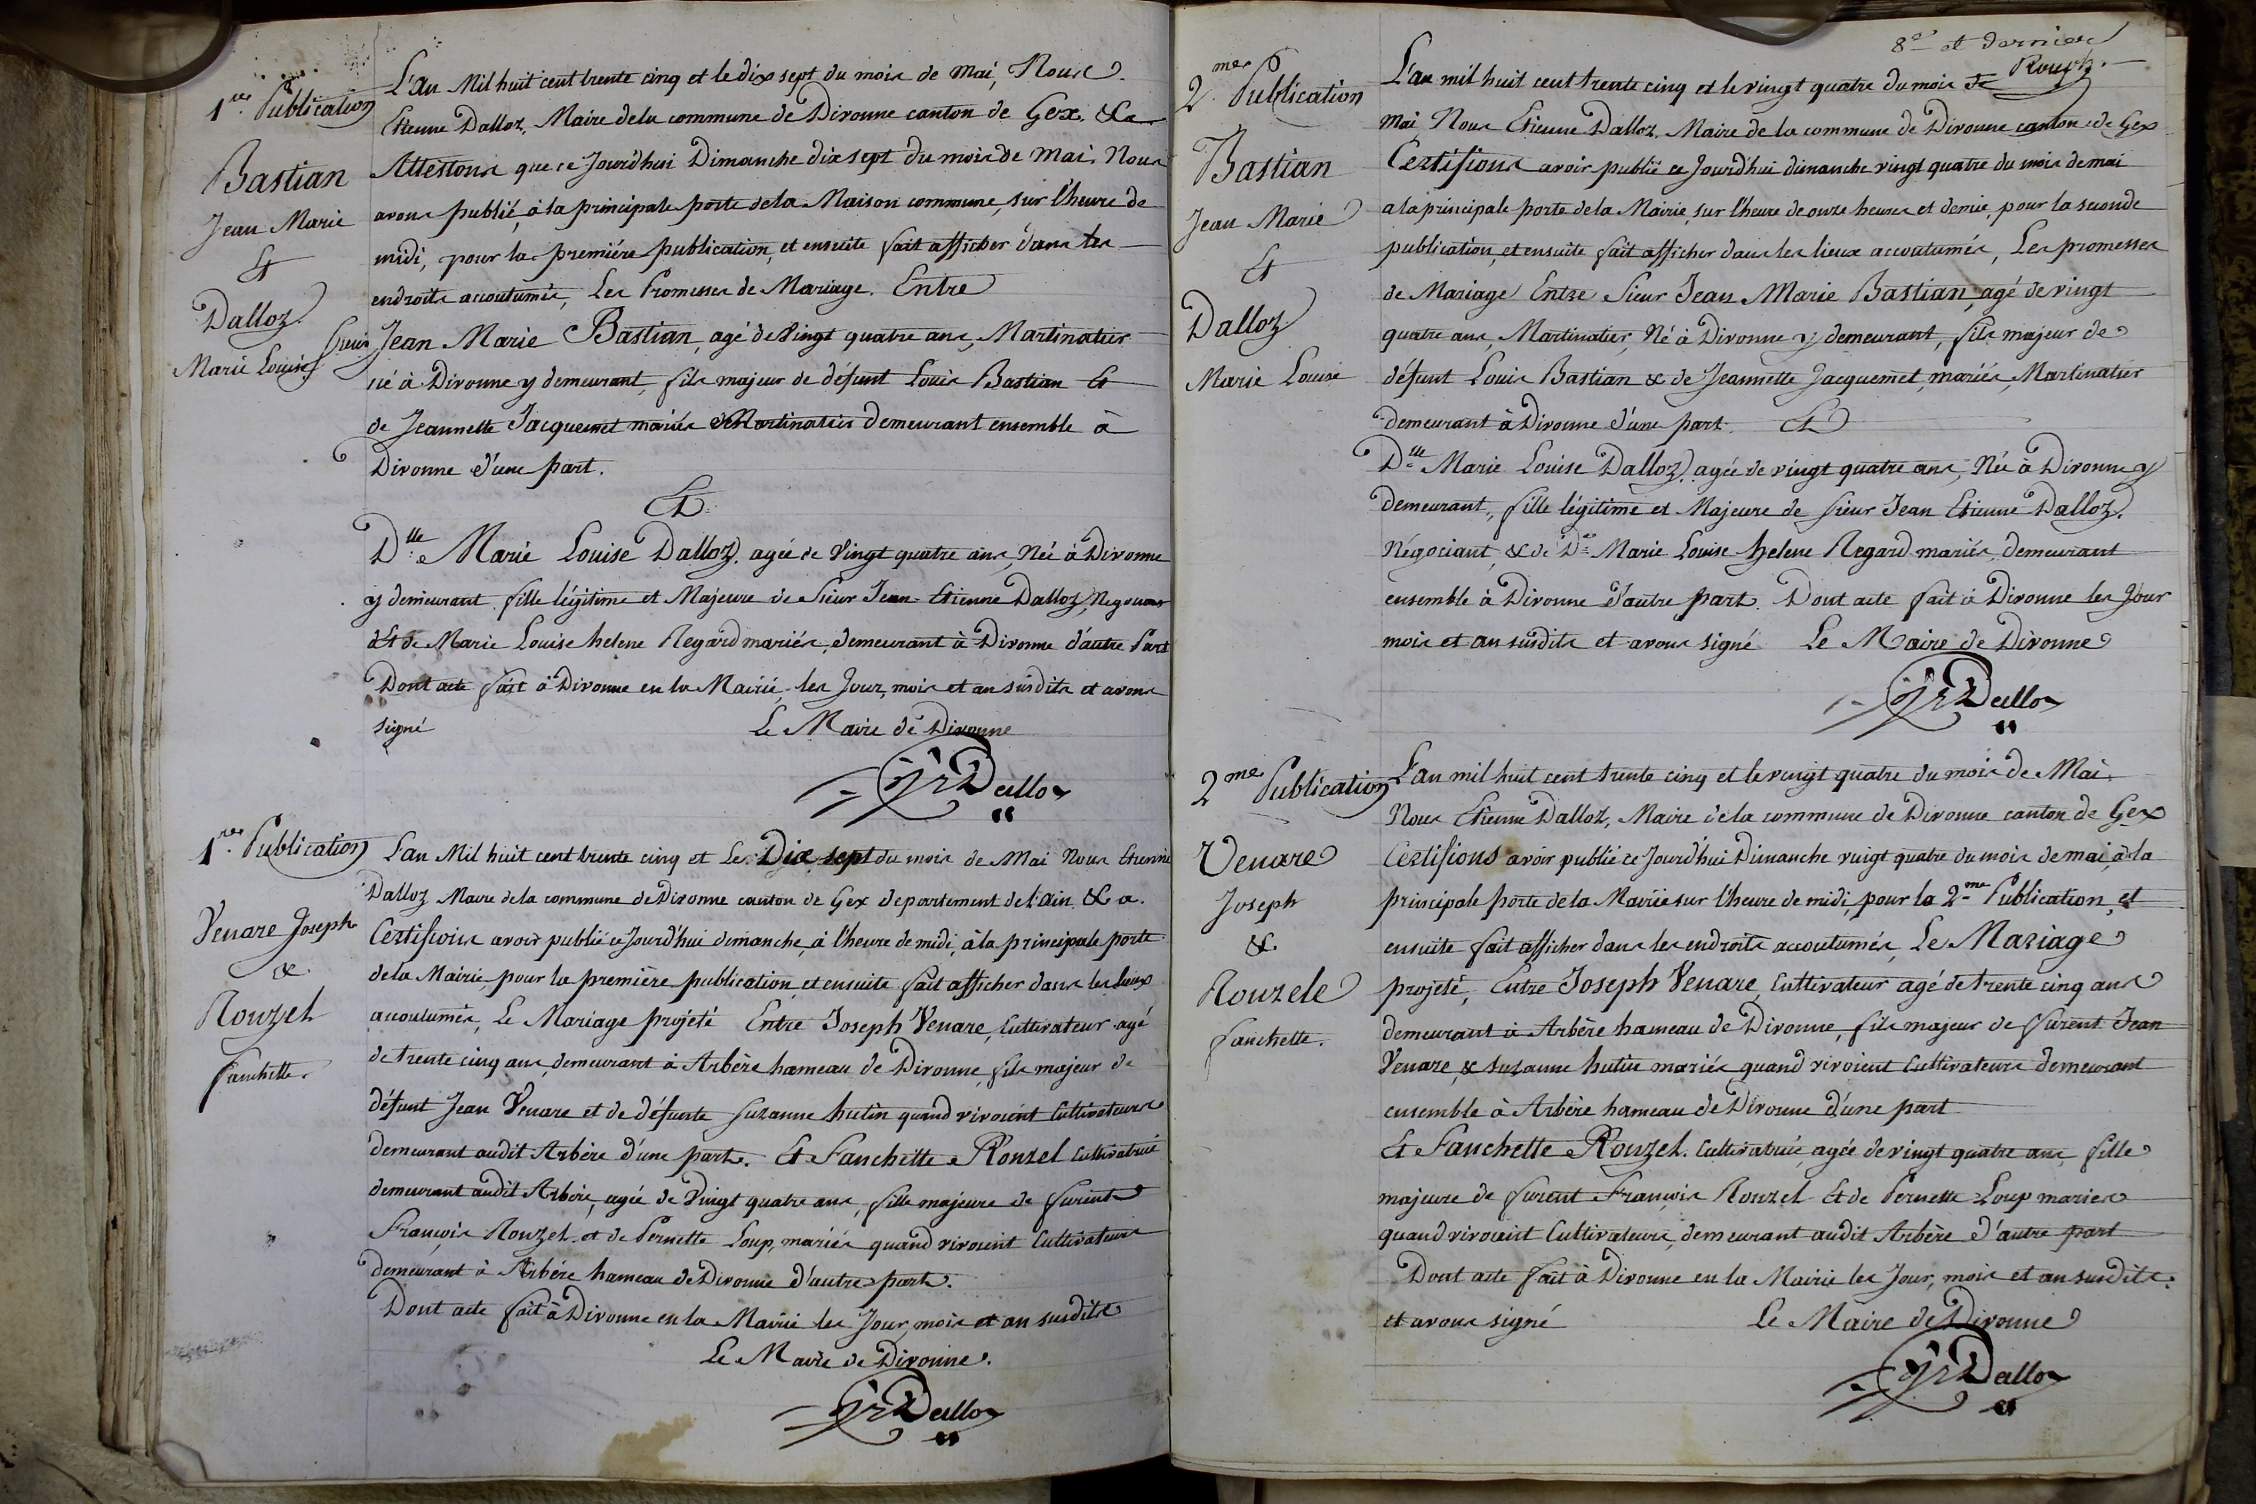 1re Publication
Bastian
Jean Marie
Et
Dalloz
Marie Louise
L'an Mil huit cent trente cinq et le dix sept du mois de Mai, Nous
Etienne Dalloz, Maire de la commune de Divonne canton de Gex. &a
Attestons que ce Jourd'hui Dimanche dix sept du mois de Mai, Nous
avons publié, à la principale porte de la Maison commune, sur l'heure de
midi, pour la première publication, et ensuite fait afficher dans les
endroits accoutumés, Les Promesses de Mariage. Entre
Sieur Jean Marie Bastian, agé de Vingt quatre ans, Martinatier
né à Divonne y demeurant, fils majeur de défunt Louis Bastian Et
de Jeannette Jacquemet mariés Martinatier demeurant ensemble à
Divonne d'une part.
Et
Dlle Marie Louise Dalloz, agée de Vingt quatre ans, Née à Divonne
y demeurant fille légitime et Majeure de Sieur Jean Etienne Dalloz,
Et de Marie Louise helene Regard mariés, demeurant à Divonne d'autre Part
Dont acte fait à Divonne en la Mairie, les Jour, mois et an susdits et avons
signé Le Maire de Divonne
Dalloz
1re Publication
Venare Joseph
&
Rouzel
fanchette.
L'an Mil huit cent trente cinq et Le Dix sept du mois de Mai Nous Etienne
Dalloz Maire de la commune de Divonne canton de Gex departement de l'ain &a.
Certifions avoir publié ce Jourd'hui dimanche, à l'heure de midi, à la principale porte
de la Mairie, pour la première publication, et ensuite fait afficher dans les lieux
accoutumés, Le Mariage projeté Entre Joseph Venare, Cultivateur agé
de trente cinq ans, demeurant à Arbère hameau de Divonne, fils majeur de
défunt Jean Venare et de défunte Suzanne hutin quand vivoient Cultivateurs
demeurant audit Arbère d'une part. Et Fanchette Rouzel Cultivatrice
demeurant audit Arbère, agée de Vingt quatre ans, fille majeure de furent
François Rouzel et de Pernette Loup, mariés quand vivoient Cultivateurs
demeurant à Arbère hameau de Divonne d'autre part.
Dont acte fait à Divonne en la Mairie les Jour, mois et an susdits
Le Maire de Divonne.
Dalloz
8e et dernier
2me Publication
Bastian
Jean Marie
Et
Dalloz
Marie Louise
L'an mil huit cent trente cinq et le vingt quatre du mois de
Mai, Nous Etienne Dalloz, Maire de la commune de Divonne canton de Gex
Certifions avoir publié ce Jourd'hui dimanche vingt quatre du mois de mai
a la principale porte de la Mairie, sur l'heure de onze heures et demie, pour la seconde
publication, et ensuite fait afficher dans les lieux accoutumés, Les promesses
de Mariage Entre Sieur Jean Marie Bastian, agé de vingt
quatre ans, Martinatier, Né à Divonne y demeurant, fils majeur de
défunt Louis Bastian & de Jeannette Jacquemet, mariés, Martinatier
demeurant à Divonne d'une part. Et
Dlle Marie Louise Dalloz, agée de vingt quatre ans, Née à Divonne y
demeurant, fille légitime et Majeure de Sieur Jean Etienne Dalloz,
Négociant, & de De Marie Louise helene Regard mariés, demeurant
ensemble à Divonne d'autre part. Dont acte fait à Divonne les Jour
mois et an susdits et avons signé Le Maire de Divonne
Dalloz
2me Publication
Venare
Joseph
&
Rouzele
fanchette.
L'an mil huit cent trente cinq et le vingt quatre du mois de Mai,
Nous Etienne Dalloz, Maire de la commune de Divonne canton de Gex
Certifions avoir publié ce Jourd'hui Dimanche vingt quatre du mois de mai, à la
principale porte de la Mairie sur l'heure de midi, pour la 2me Publication, et
ensuite fait afficher dans les endroits accoutumés, Le Mariage
projeté, Entre Joseph Venare, Cultivateur agé de trente cinq ans
demeurant à Arbère hameau de Divonne, fils majeur de furent Jean
Venare, & Suzanne hutin mariés quand vivoient Cultivateurs demeurant
ensemble à Arbère hameau de Divonne d'une part
Et Fanchette Rouzel. Cultivatrice, agée de vingt quatre ans, fille
majeure de furent François Rouzel Et de Pernette Loup mariés
quand vivoient Cultivateurs, demeurant audit Arbère d'autre part
Dont acte fait à Divonne en la Mairie les Jour, mois et an susdits.
et avons signé Le Maire de Divonne
Dalloz